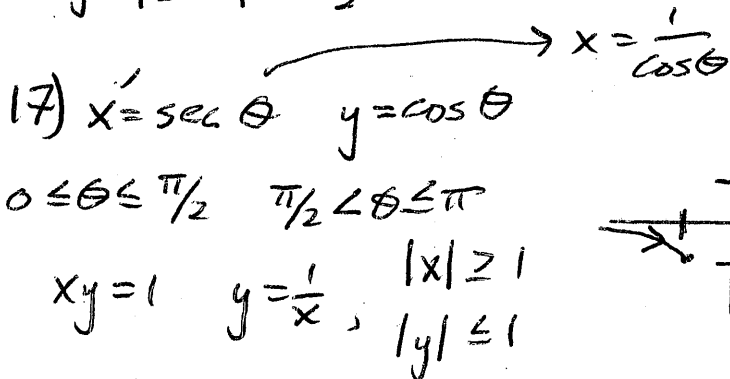 x = 1/cosθ
17) x = sec θ y = cos θ
0 ≤ θ ≤ π/2 π/2 < θ ≤ π
xy = 1 y = 1/x , |x| ≥ 1
|y| ≤ 1